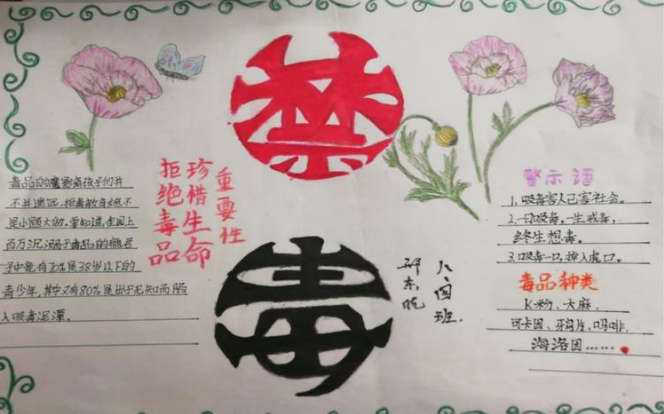 禁
毒
珍惜生命
拒绝毒品
重要性
毒品的魔影离孩子们并
不甚遥远,拒毒教育绝不
是小题大做。要知道,全国上
百万沉溺于毒品的瘾君
子中竟有70%是38岁以下的
青少年,其中又有80%是出于无知而陷
入吸毒泥潭。
八、四班
警示语
1.吸毒害人己害社会。
2.一日吸毒,一生戒毒,
终生想毒。
3.吸毒一口,掉入虎口。
毒品种类
K粉、大麻、
可卡因、鸦片、吗啡、
海洛因……